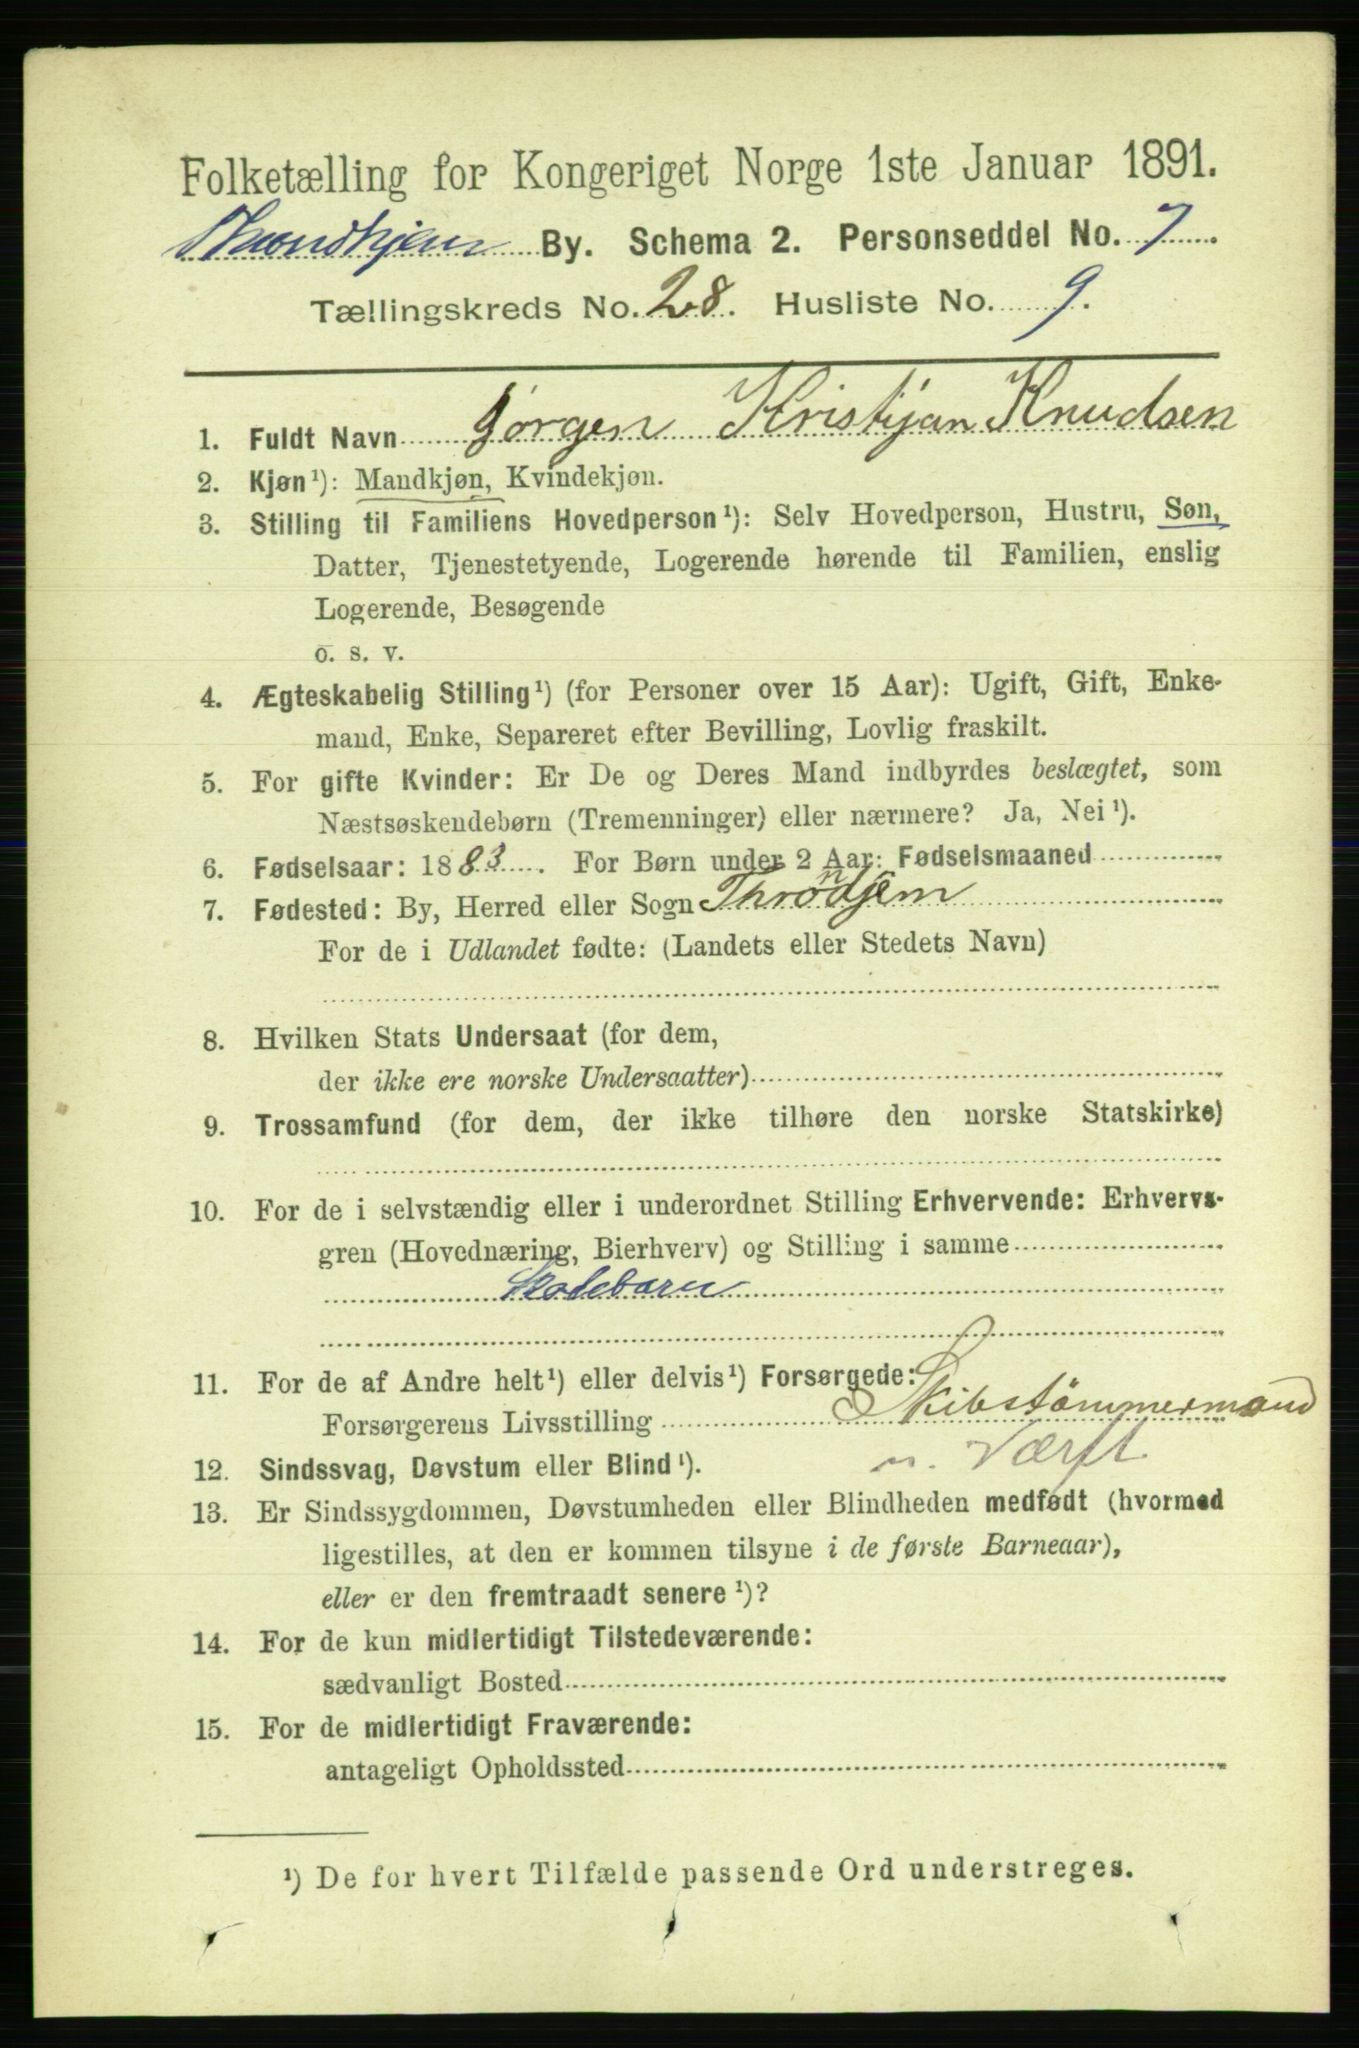 Folketælling for Kongeriget Norge 1ste Januar 1891.
Throndhjem By. Schema 2. Personseddel No. 7.
Tællingskreds No. 28. Husliste No. 9.
1. Fuldt Navn Jørgen Kristjan Knudsen
2. Kjøn¹): Mandkjøn, Kvindekjøn.
3. Stilling til Familiens Hovedperson¹): Selv Hovedperson, Hustru, Søn,
Datter, Tjenestetyende, Logerende hørende til Familien, enslig
Logerende, Besøgende
o. s. v.
4. Ægteskabelig Stilling¹) (for Personer over 15 Aar): Ugift, Gift, Enke-
mand, Enke, Separeret efter Bevilling, Lovlig fraskilt.
5. For gifte Kvinder: Er De og Deres Mand indbyrdes beslægtet, som
Næstsøskendebørn (Tremenninger) eller nærmere? Ja, Nei¹).
6. Fødselsaar: 1883. For Børn under 2 Aar: Fødselsmaaned
7. Fødested: By, Herred eller Sogn Throndjem
For de i Udlandet fødte: (Landets eller Stedets Navn)
8. Hvilken Stats Undersaat (for dem,
der ikke ere norske Undersaatter)
9. Trossamfund (for dem, der ikke tilhøre den norske Statskirke)
10. For de i selvstændig eller i underordnet Stilling Erhvervende: Erhvervs-
gren (Hovednæring, Bierhverv) og Stilling i samme
Skolebarn
11. For de af Andre helt¹) eller delvis¹) Forsørgede:
Forsørgerens Livsstilling Skibstömmermand
v. Værft
12. Sindssvag, Døvstum eller Blind¹).
13. Er Sindssygdommen, Døvstumheden eller Blindheden medfødt (hvormed
ligestilles, at den er kommen tilsyne i de første Barneaar),
eller er den fremtraadt senere¹)?
14. For de kun midlertidigt Tilstedeværende:
sædvanligt Bosted
15. For de midlertidigt Fraværende:
antageligt Opholdssted
¹) De for hvert Tilfælde passende Ord understreges.